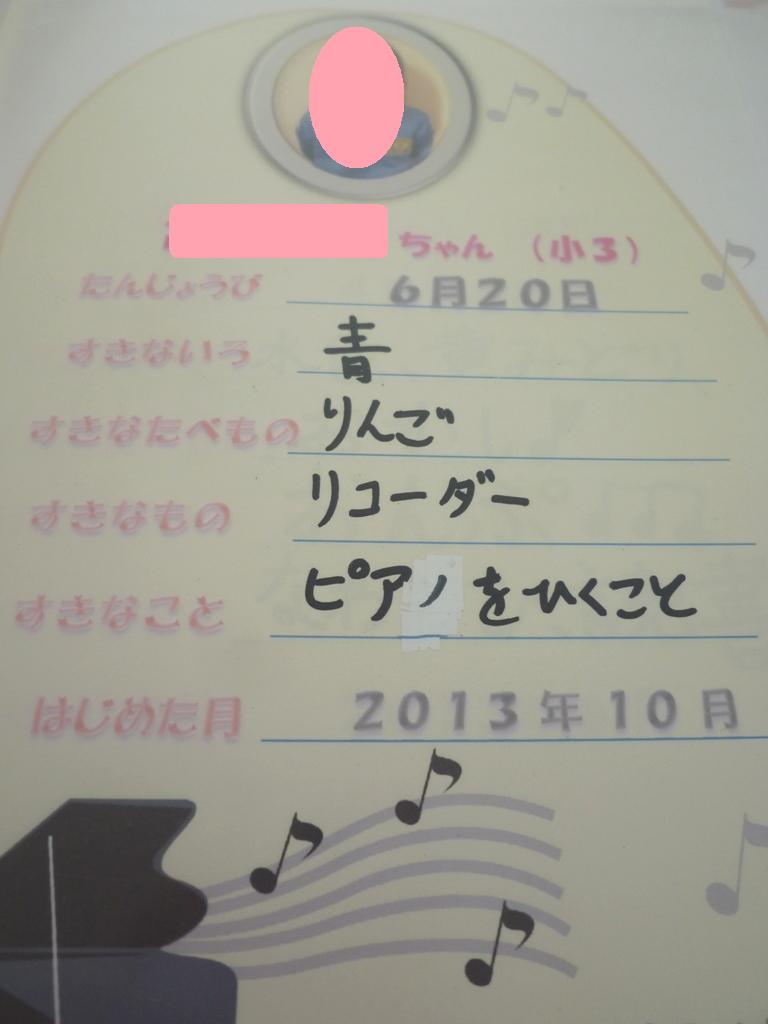 ちゃん (小3)
たんじょうび 6月20日
すきないろ 青
すきなたべもの りんご
すきなもの リコーダー
すきなこと ピアノをひくこと
はじめた月 2013年10月